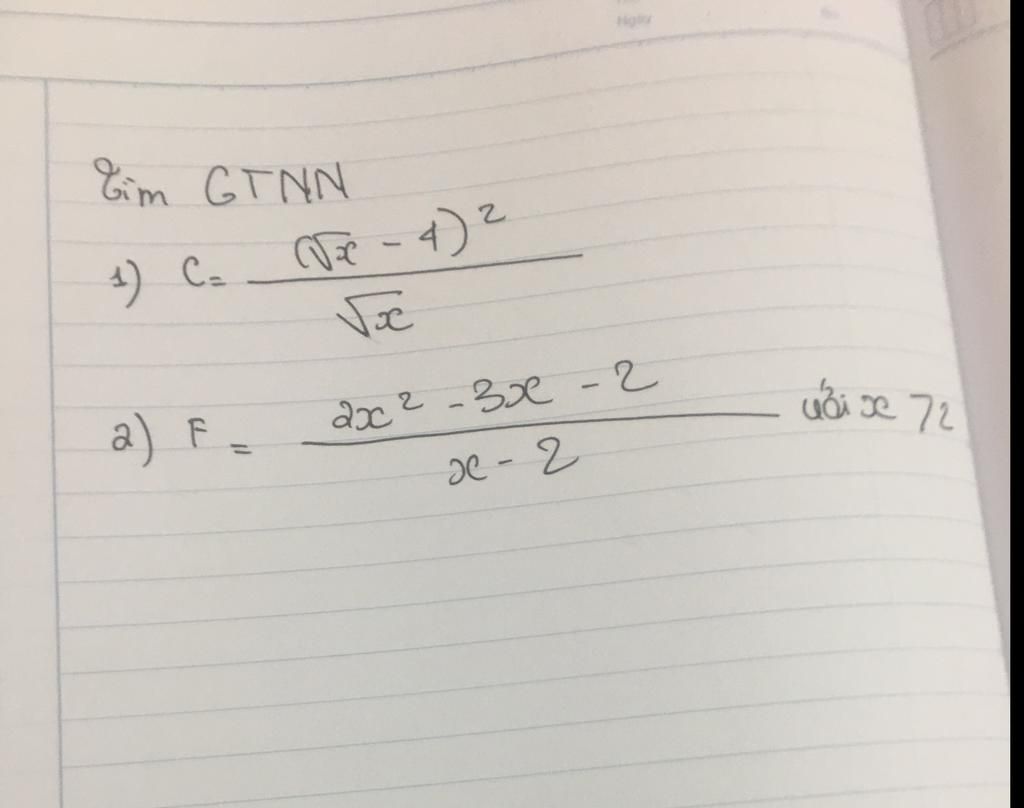 Ngày
Tìm GTNN
1) C = (√x - 4)² / √x
2) F = 2x² - 3x - 2 / x - 2 với x > 2